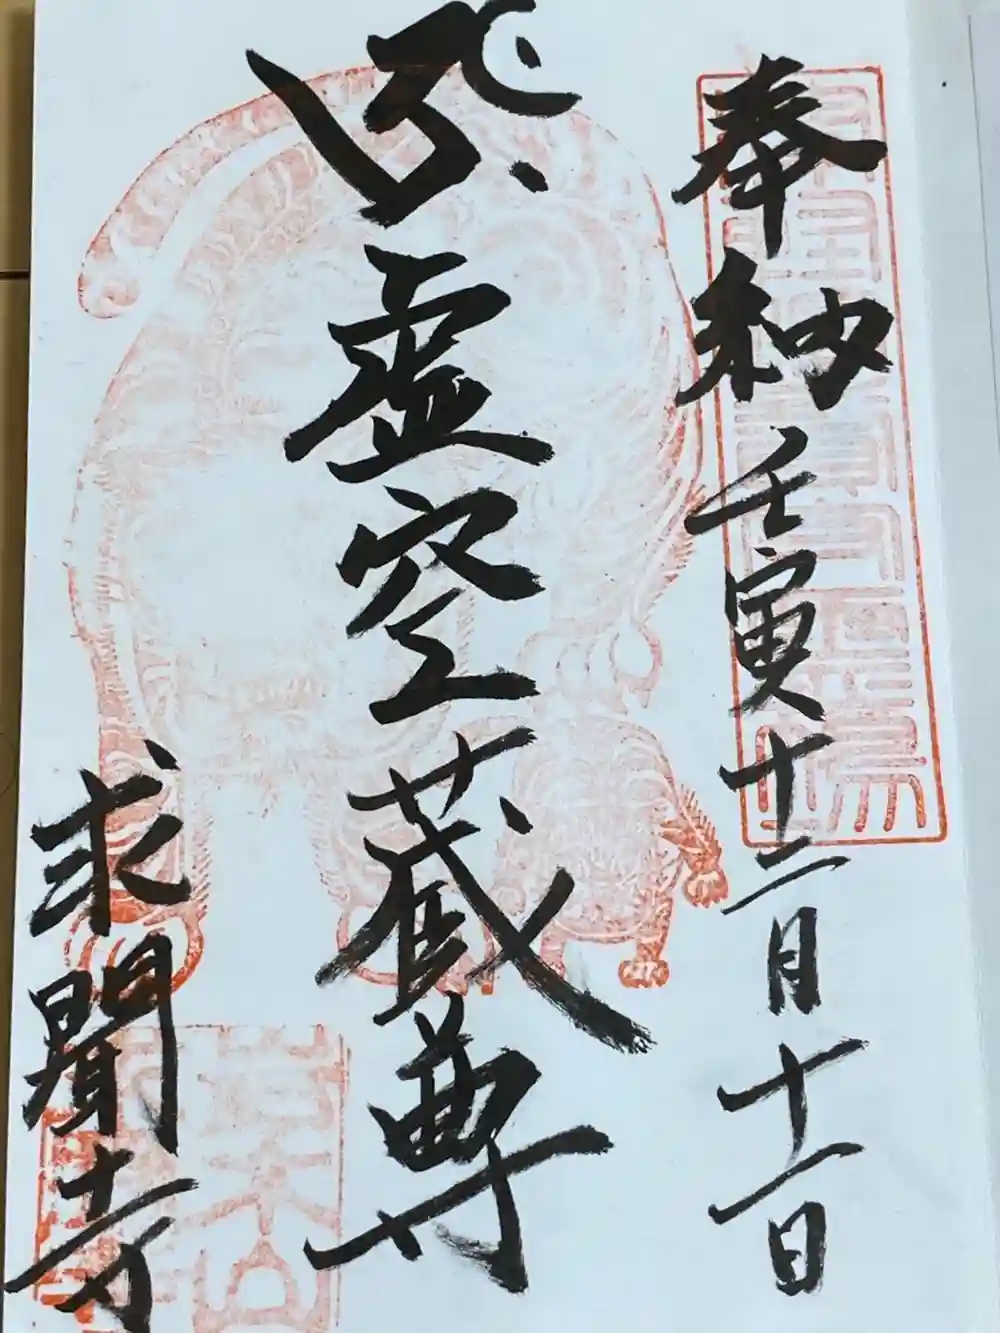 奉納 壬寅十二月十一日
虚空蔵尊
求聞寺